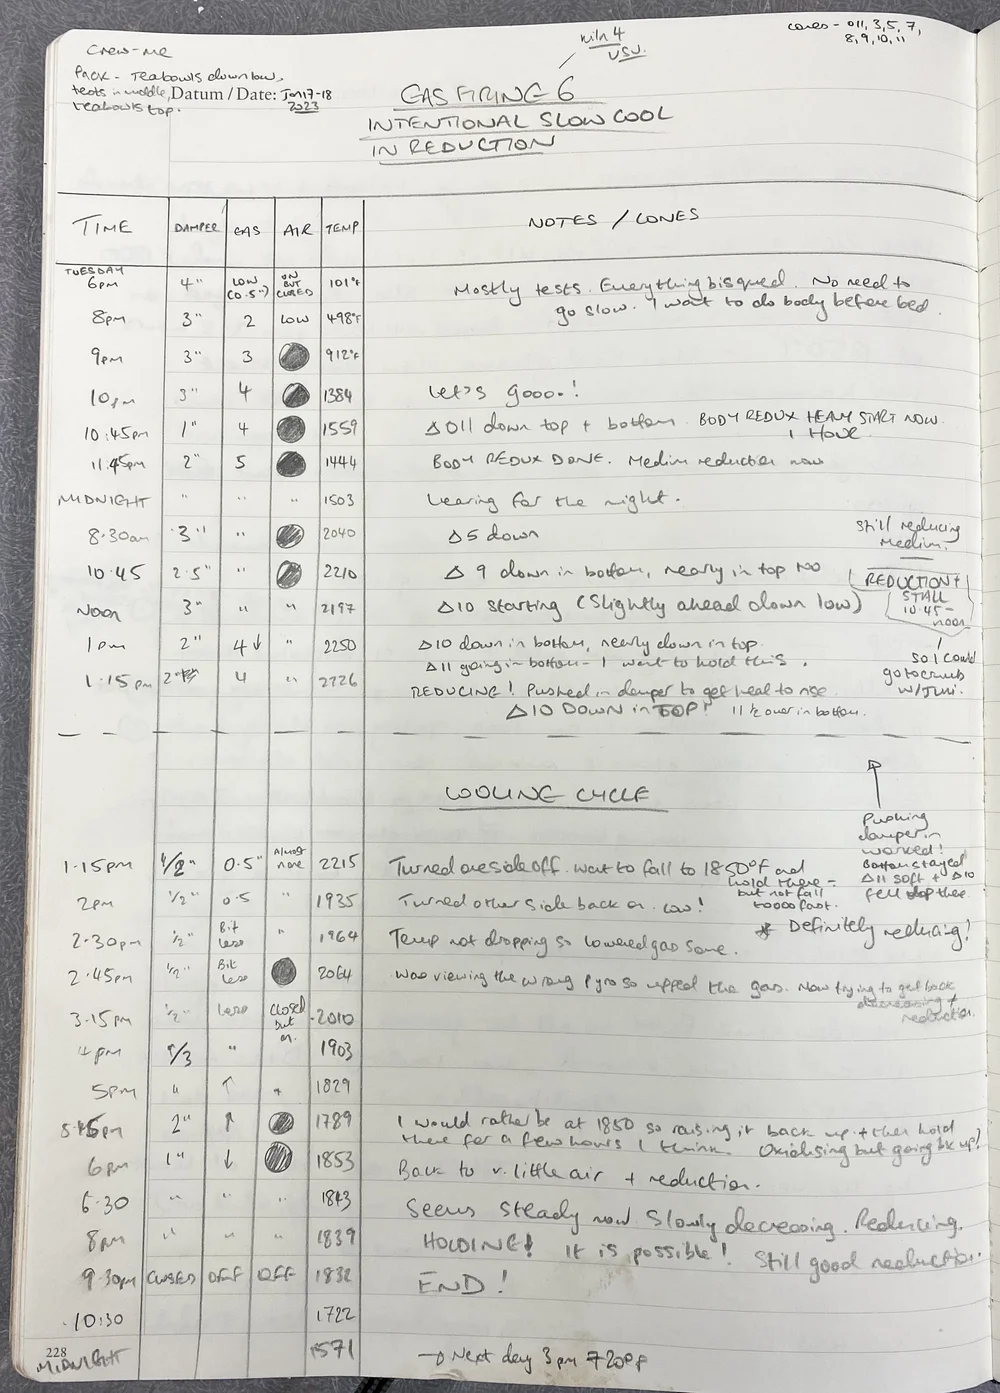 Kiln 4
USU.
cones - 011, 3, 5, 7,
8, 9, 10, 11
Crew - me
Pack - Teabowls down low,
tests in middle,
teabowls top.
Datum / Date: Jan 17-18
2023
GAS FIRING 6
INTENTIONAL SLOW COOL
IN REDUCTION
TIME DAMPER GAS AIR TEMP NOTES / CONES
TUESDAY
6pm 4" LOW (0.5") ON BUT CLOSED 101°F Mostly tests. Everything bisqued. No need to
go slow. I want to do body before bed.
8pm 3" 2 LOW 498°F
9pm 3" 3 912°F
10pm 3" 4 1384 Let's gooo.!
10:45pm 1" 4 1559 Δ011 down top + bottom. BODY REDUX HEAVY START NOW.
1 HOUR.
11.45pm 2" 5 1444 BODY REDUX DONE. Medium reduction now
MIDNIGHT " " " 1503 Leaving for the night.
8:30am 3" " 2040 Δ5 down
Still reducing
Medium.
10:45 2.5" " 2210 Δ 9 down in bottom, nearly in top too
REDUCTION +
STALL
10.45 -
noon
Noon 3" " " 2197 Δ10 starting (slightly ahead down low)
1pm 2" 4↓ " 2250 Δ10 down in bottom, nearly down in top.
Δ11 going in bottom - I want to hold this.
so I could
go to
w/
1:15pm 2" 4 " 2226 REDUCING! Pushed in damper to get heat to rise
Δ10 DOWN in TOP! 11 1/2 over in bottom.
COOLING CYCLE
Pushing
damper in
worked!
Bottom stayed
Δ11 soft + Δ10
fell top then
1.15pm 1/2" 0.5" Almost none 2215 Turned one side off. Want to fall to 1850°F and
hold there -
but not fall
too fast.
2pm 1/2" 0.5 " 1935 Turned other side back on. Low!
* Definitely reducing!
2.30pm 1/2" Bit Less " 1964 Temp not dropping so lowered gas some.
2.45pm 1/2" Bit Less 2064 Was viewing the wrong pyro so upped the gas. Now trying to get back
decreasing +
reduction.
3.15pm 1/2" Less CLOSED but on. 2010
4pm 1/3 " 1903
5pm " ↑ " 1829
5:45pm 2" ↑ 1789 I would rather be at 1850 so raising it back up + then hold
there for a few hours I think. Oxidising but going bk up?
6pm 1" ↓ 1853 Back to v. little air + reduction.
6.30 " " " 1843 Seems steady now. Slowly decreasing. Reducing.
8pm " " " 1839 HOLDING! It is possible! Still good reduction.
9.30pm CLOSED OFF OFF 1832 END!
10:30 1722
228
MIDNIGHT 1571 → Next day 3pm 720°F